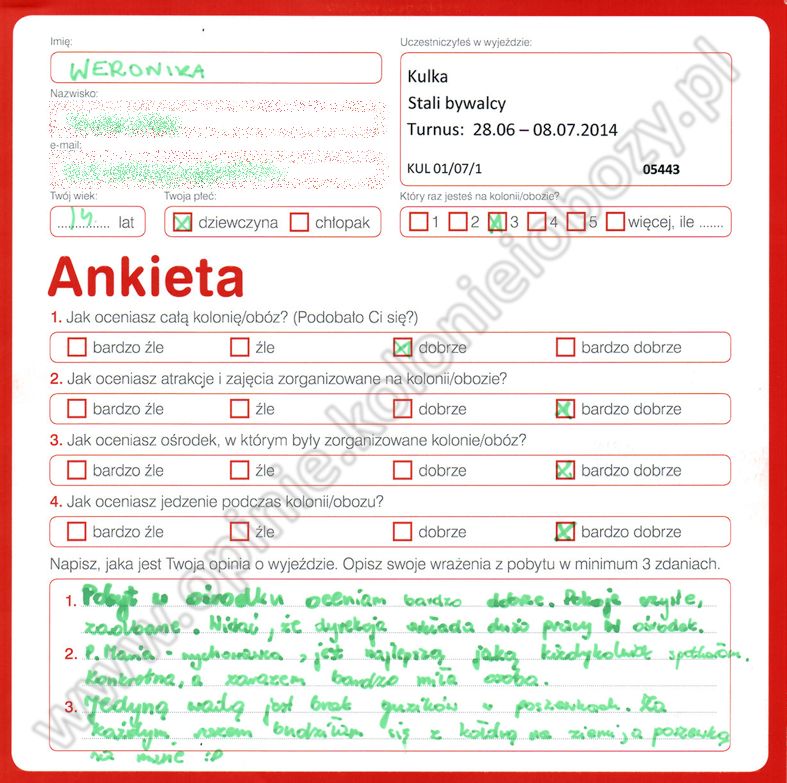 Imię:
WERONIKA
Nazwisko:
e-mail:
Twój wiek:
14 lat
Twoja płeć:
dziewczyna chłopak
Uczestniczyłeś w wyjeździe:
Kulka
Stali bywalcy
Turnus: 28.06 – 08.07.2014
KUL 01/07/1 05443
Który raz jesteś na kolonii/obozie?
1 2 3 4 5 więcej, ile .......
Ankieta
1. Jak oceniasz całą kolonię/obóz? (Podobało Ci się?)
bardzo źle źle dobrze bardzo dobrze
2. Jak oceniasz atrakcje i zajęcia zorganizowane na kolonii/obozie?
bardzo źle źle dobrze bardzo dobrze
3. Jak oceniasz ośrodek, w którym były zorganizowane kolonie/obóz?
bardzo źle źle dobrze bardzo dobrze
4. Jak oceniasz jedzenie podczas kolonii/obozu?
bardzo źle źle dobrze bardzo dobrze
Napisz, jaka jest Twoja opinia o wyjeździe. Opisz swoje wrażenia z pobytu w minimum 3 zdaniach.
1. Pobyt w ośrodku oceniam bardzo dobrze. Pokoje czyste,
zadbane. Widać, że dyrekcja wkłada dużo pracy w ośrodek.
2. P. Maria - wychowawka, jest najlepszą jaką kiedykolwiek spotkałam.
Konkretna, a zarazem bardzo miła osoba.
3. Jedyną wadą jest brak guzików w poszewkach. Za
każdym razem budziłam się z kołdrą na ziemi, a poszewką
na mnie :P
www.opinie.kolonieiobozy.pl